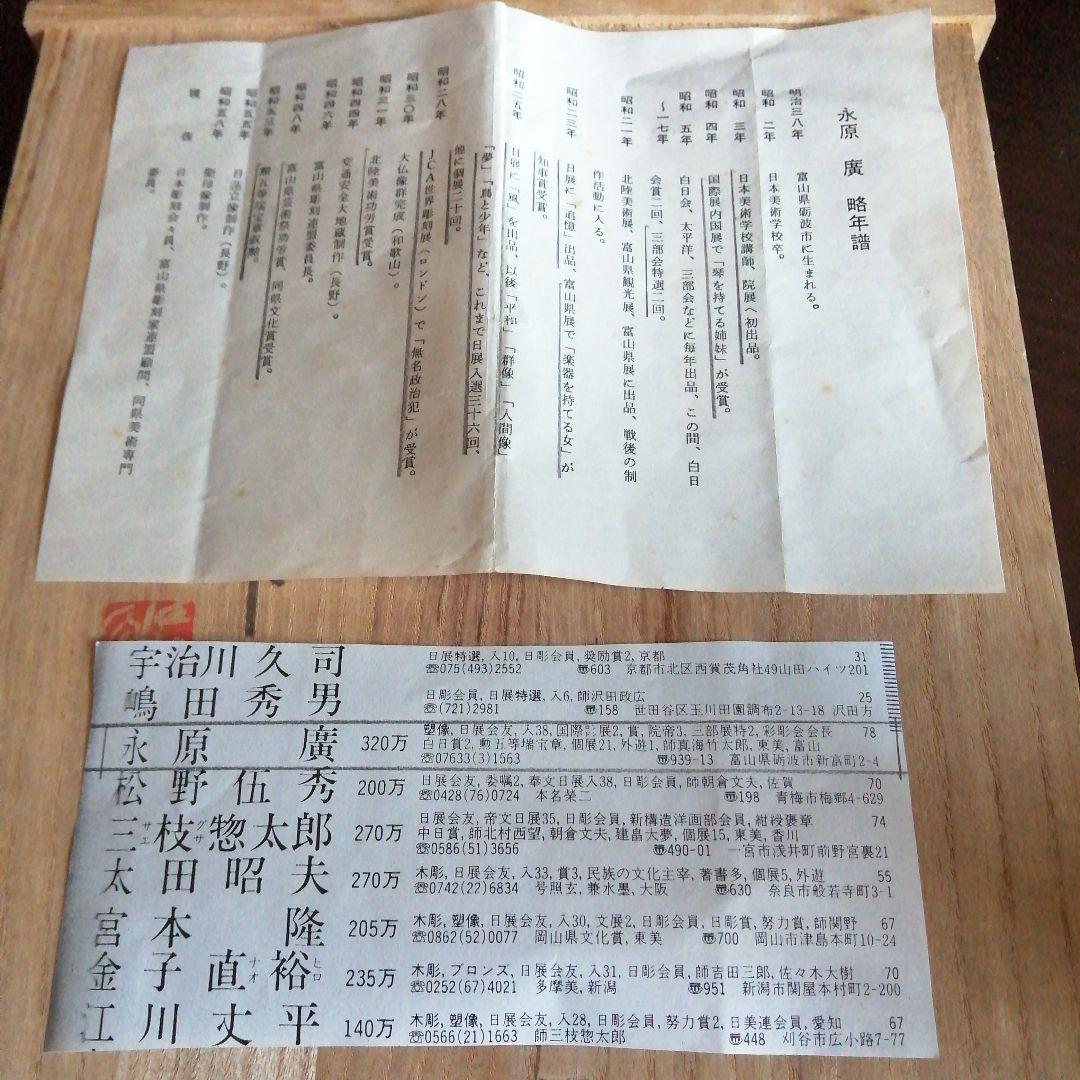 永原 廣 略年譜
明治三八年 富山県砺波市に生まれる。
昭和 二年 日本美術学校卒。
昭和 三年 日本美術学校講師、院展へ初出品。
昭和 四年 国際展内国展で「琴を持てる姉妹」が受賞。
昭和 五年 白日会、太平洋、三部会などに毎年出品、この間、白日
〜一七年 会賞二回、三部会特選二回。
昭和二一年 北陸美術展、富山県観光展、富山県展に出品、戦後の制
作活動に入る。
昭和二三年 日展に「追憶」出品、富山県展で「楽器を持てる女」が
知事賞受賞。
昭和二五年 日展に「風」を出品、以後「平和」「群像」「人間像」
「夢」「鳥と少年」など、これまで日展入選三十六回、
他に個展二十回。
昭和二八年 JCA世界彫刻展（ロンドン）で「無名政治犯」が受賞。
昭和三〇年 大仏像群完成（和歌山）。
昭和三一年 北陸美術功労賞受賞。
昭和四四年 交通安全大地蔵制作（長野）。
昭和四六年 富山県彫刻連盟委員長。
昭和四八年 富山県芸術祭功労賞、同県文化賞受賞。
昭和五三年 勲五等瑞宝章叙勲。
昭和五五年 日蓮立像制作（長野）。
昭和五八年 聖母像制作。
現 在 日本彫刻会々員、富山県彫刻家連盟顧問、同県美術専門
委員。
宇治川久司 日展特選,入10,日彫会員,奨励賞2,京都 31
☎075(493)2552 〠603 京都市北区西賀茂角社49山田ハイツ201
嶋田秀男 日彫会員,日展特選,入6,師沢田政広 25
☎(721)2981 〠158 世田谷区玉川田園調布2-13-18 沢田方
永原廣 320万 塑像,日展会友,入38,国際展2,賞,院帝3,三部展特2,彩彫会会長 78
白日賞2,勲五等瑞宝章,個展21,外遊1,師真海竹太郎,東美,富山
☎07633(3)1563 〠939-13 富山県砺波市新富町2-4
松野伍秀 200万 日展会友,委嘱2,奉文日展入38,日彫会員,師朝倉文夫,佐賀 70
☎0428(76)0724 本名榮二 〠198 青梅市梅郷4-629
三枝惣太郎 サエグサ 270万 日展会友,帝文日展35,日彫会員,新構造洋画部会員,紺綬褒章 74
中日賞,師北村西望,朝倉文夫,建畠大夢,個展15,東美,香川
☎0586(51)3656 〠490-01 一宮市浅井町前野宮裏21
太田昭夫 270万 木彫,日展会友,入33,賞3,民族の文化主宰,著書多,個展5,外遊 55
☎0742(22)6834 号照玄,兼水墨,大阪 〠630 奈良市般若寺町3-1
宮本隆 205万 木彫,塑像,日展会友,入30,文展2,日彫会員,日彫賞,努力賞,師関野 67
☎0862(52)0077 岡山県文化賞,東美 〠700 岡山市津島本町10-24
金子直裕 ナオ ヒロ 235万 木彫,ブロンズ,日展会友,入31,日彫会員,師吉田三郎,佐々木大樹 70
☎0252(67)4021 多摩美,新潟 〠951 新潟市関屋本村町2-200
江川丈平 140万 木彫,塑像,日展会友,入28,日彫会員,努力賞2,日美連会員,愛知 67
☎0566(21)1663 師三枝惣太郎 〠448 刈谷市広小路7-77